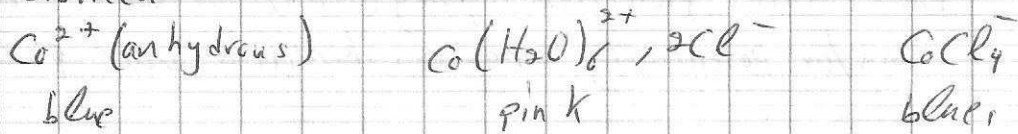 Co²⁺ (anhydrous) Co(H₂O)₆²⁺, 2Cl⁻ CoCl₄⁻
blue pink blue,